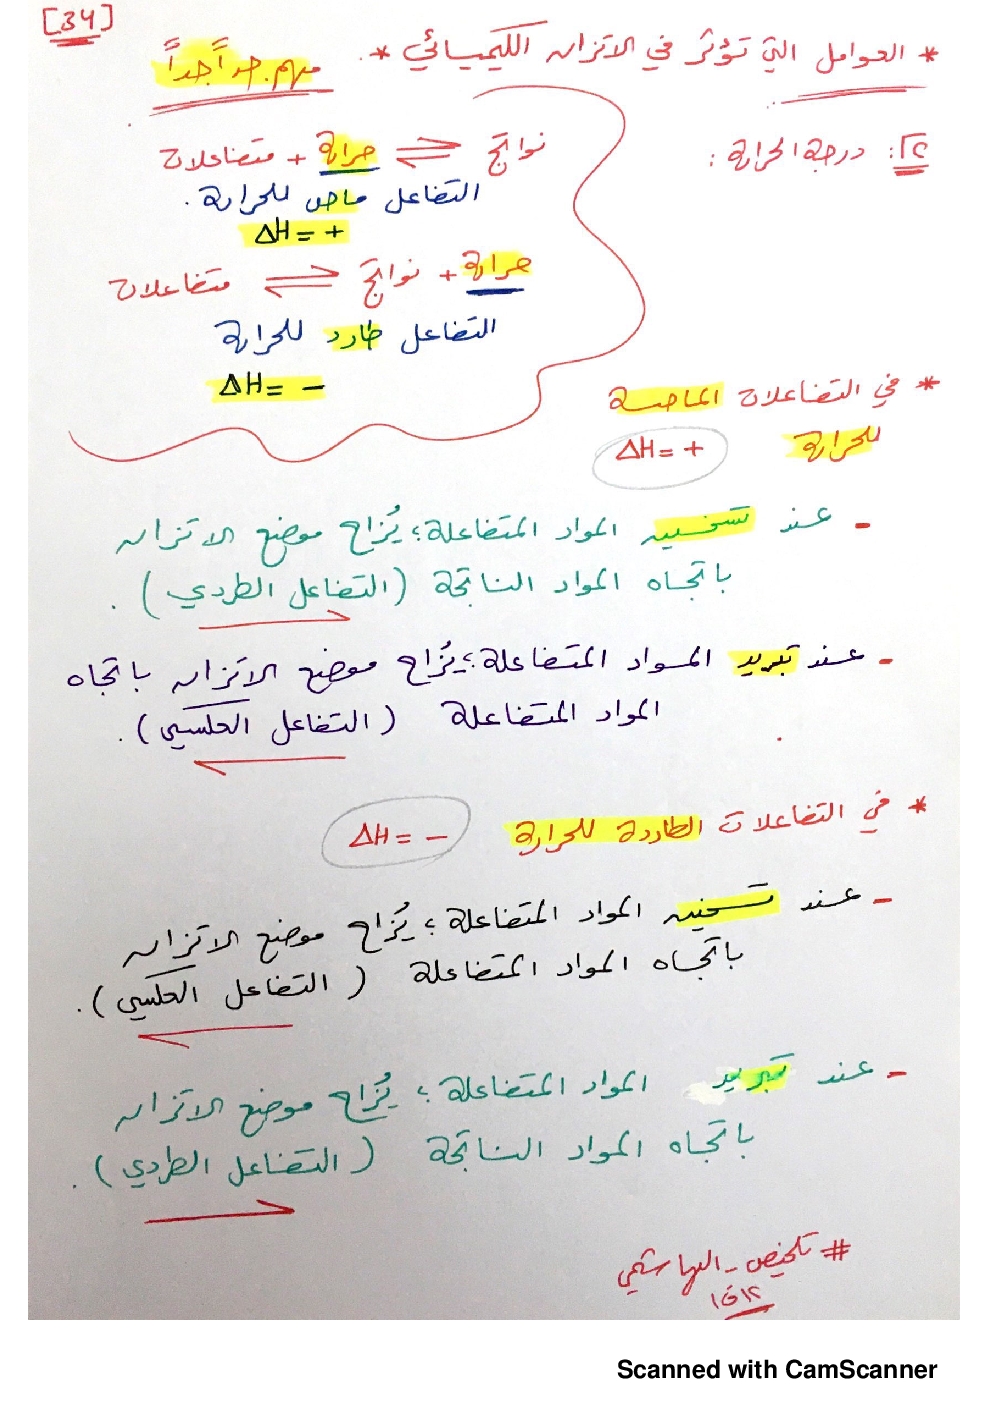 [34]
* العوامل التي تؤثر في الاتزان الكيميائي *. مهم جداً جداً
٢: درجة الحرارة :
متفاعلات + حرارة ⇌ نواتج
التفاعل ماص للحرارة .
ΔH = +
متفاعلات ⇌ نواتج + حرارة
التفاعل طارد للحرارة
ΔH = −
* في التفاعلات الماصة
للحرارة ΔH = +
- عند تسخين المواد المتفاعلة؛ يُزاح موضع الاتزان
باتجاه المواد الناتجة (التفاعل الطردي) .
- عند تبريد المواد المتفاعلة؛ يُزاح موضع الاتزان باتجاه
المواد المتفاعلة (التفاعل العكسي) .
* في التفاعلات الطاردة للحرارة ΔH = −
- عند تسخين المواد المتفاعلة؛ يُزاح موضع الاتزان
باتجاه المواد المتفاعلة (التفاعل العكسي) .
- عند تبريد المواد المتفاعلة؛ يُزاح موضع الاتزان
باتجاه المواد الناتجة (التفاعل الطردي) .
# تلخيص - الهاشمي
Scanned with CamScanner